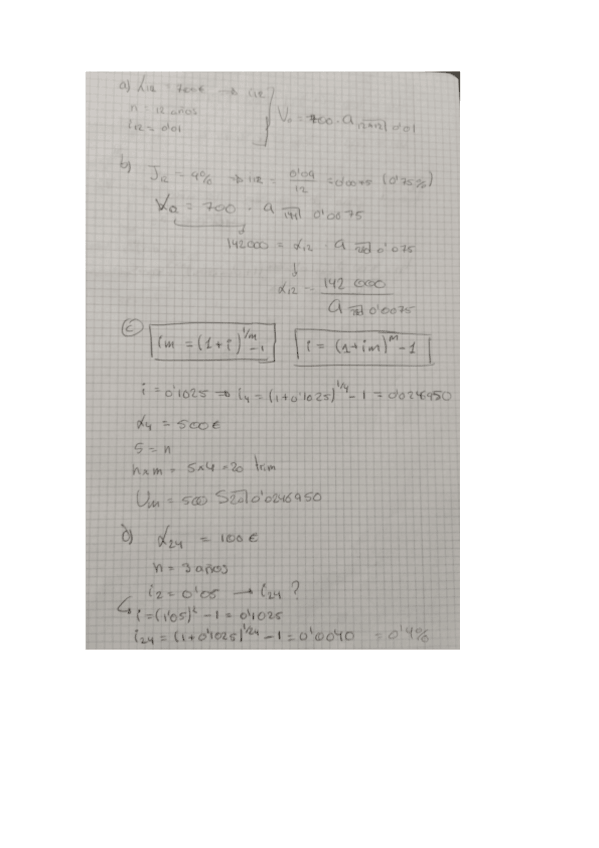 a) α12 = 700€ → i12
n = 12 años
i12 = 0'01
V0 = 700 · a 12×12| 0'01
b) J12 = 9% → i12 = 0'09/12 = 0'0075 (0'75%)
= 700 · a 0'0075
142000 = α12 · a 0'075
α12 = 142 000 / a 0'0075
c) im = (1+i)^1/m - 1 i = (1+im)^m - 1
i = 0'1025 → i4 = (1+0'1025)^1/4 - 1 = 0'0246950
α4 = 500€
5 = n
n×m = 5×4 = 20 trim
= 500 S 20| 0'0246950
d) α24 = 100€
n = 3 años
i2 = 0'05 → i24 ?
i = (1'05)^2 - 1 = 0'1025
i24 = (1+0'1025)^1/24 - 1 = 0'0040 = 0'4%